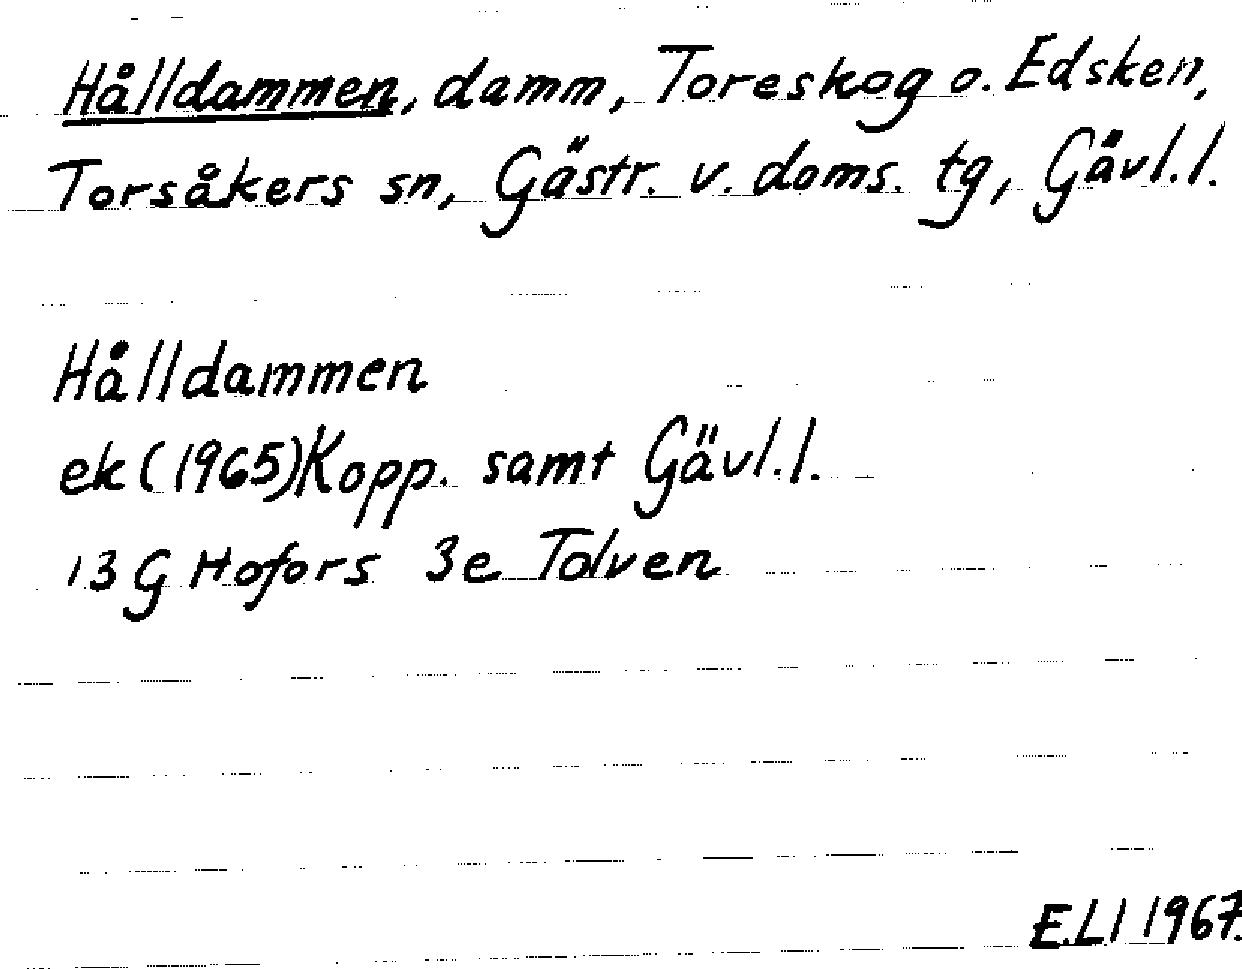 Hålldammen, damm, Toreskog o. Edsken,
Torsåkers sn, Gästr. v. doms. tg, Gävl.l.
Hålldammen
ek (1965) Kopp. samt Gävl.l.
13 G Hofors 3e Tolven
E.Ll 1967.